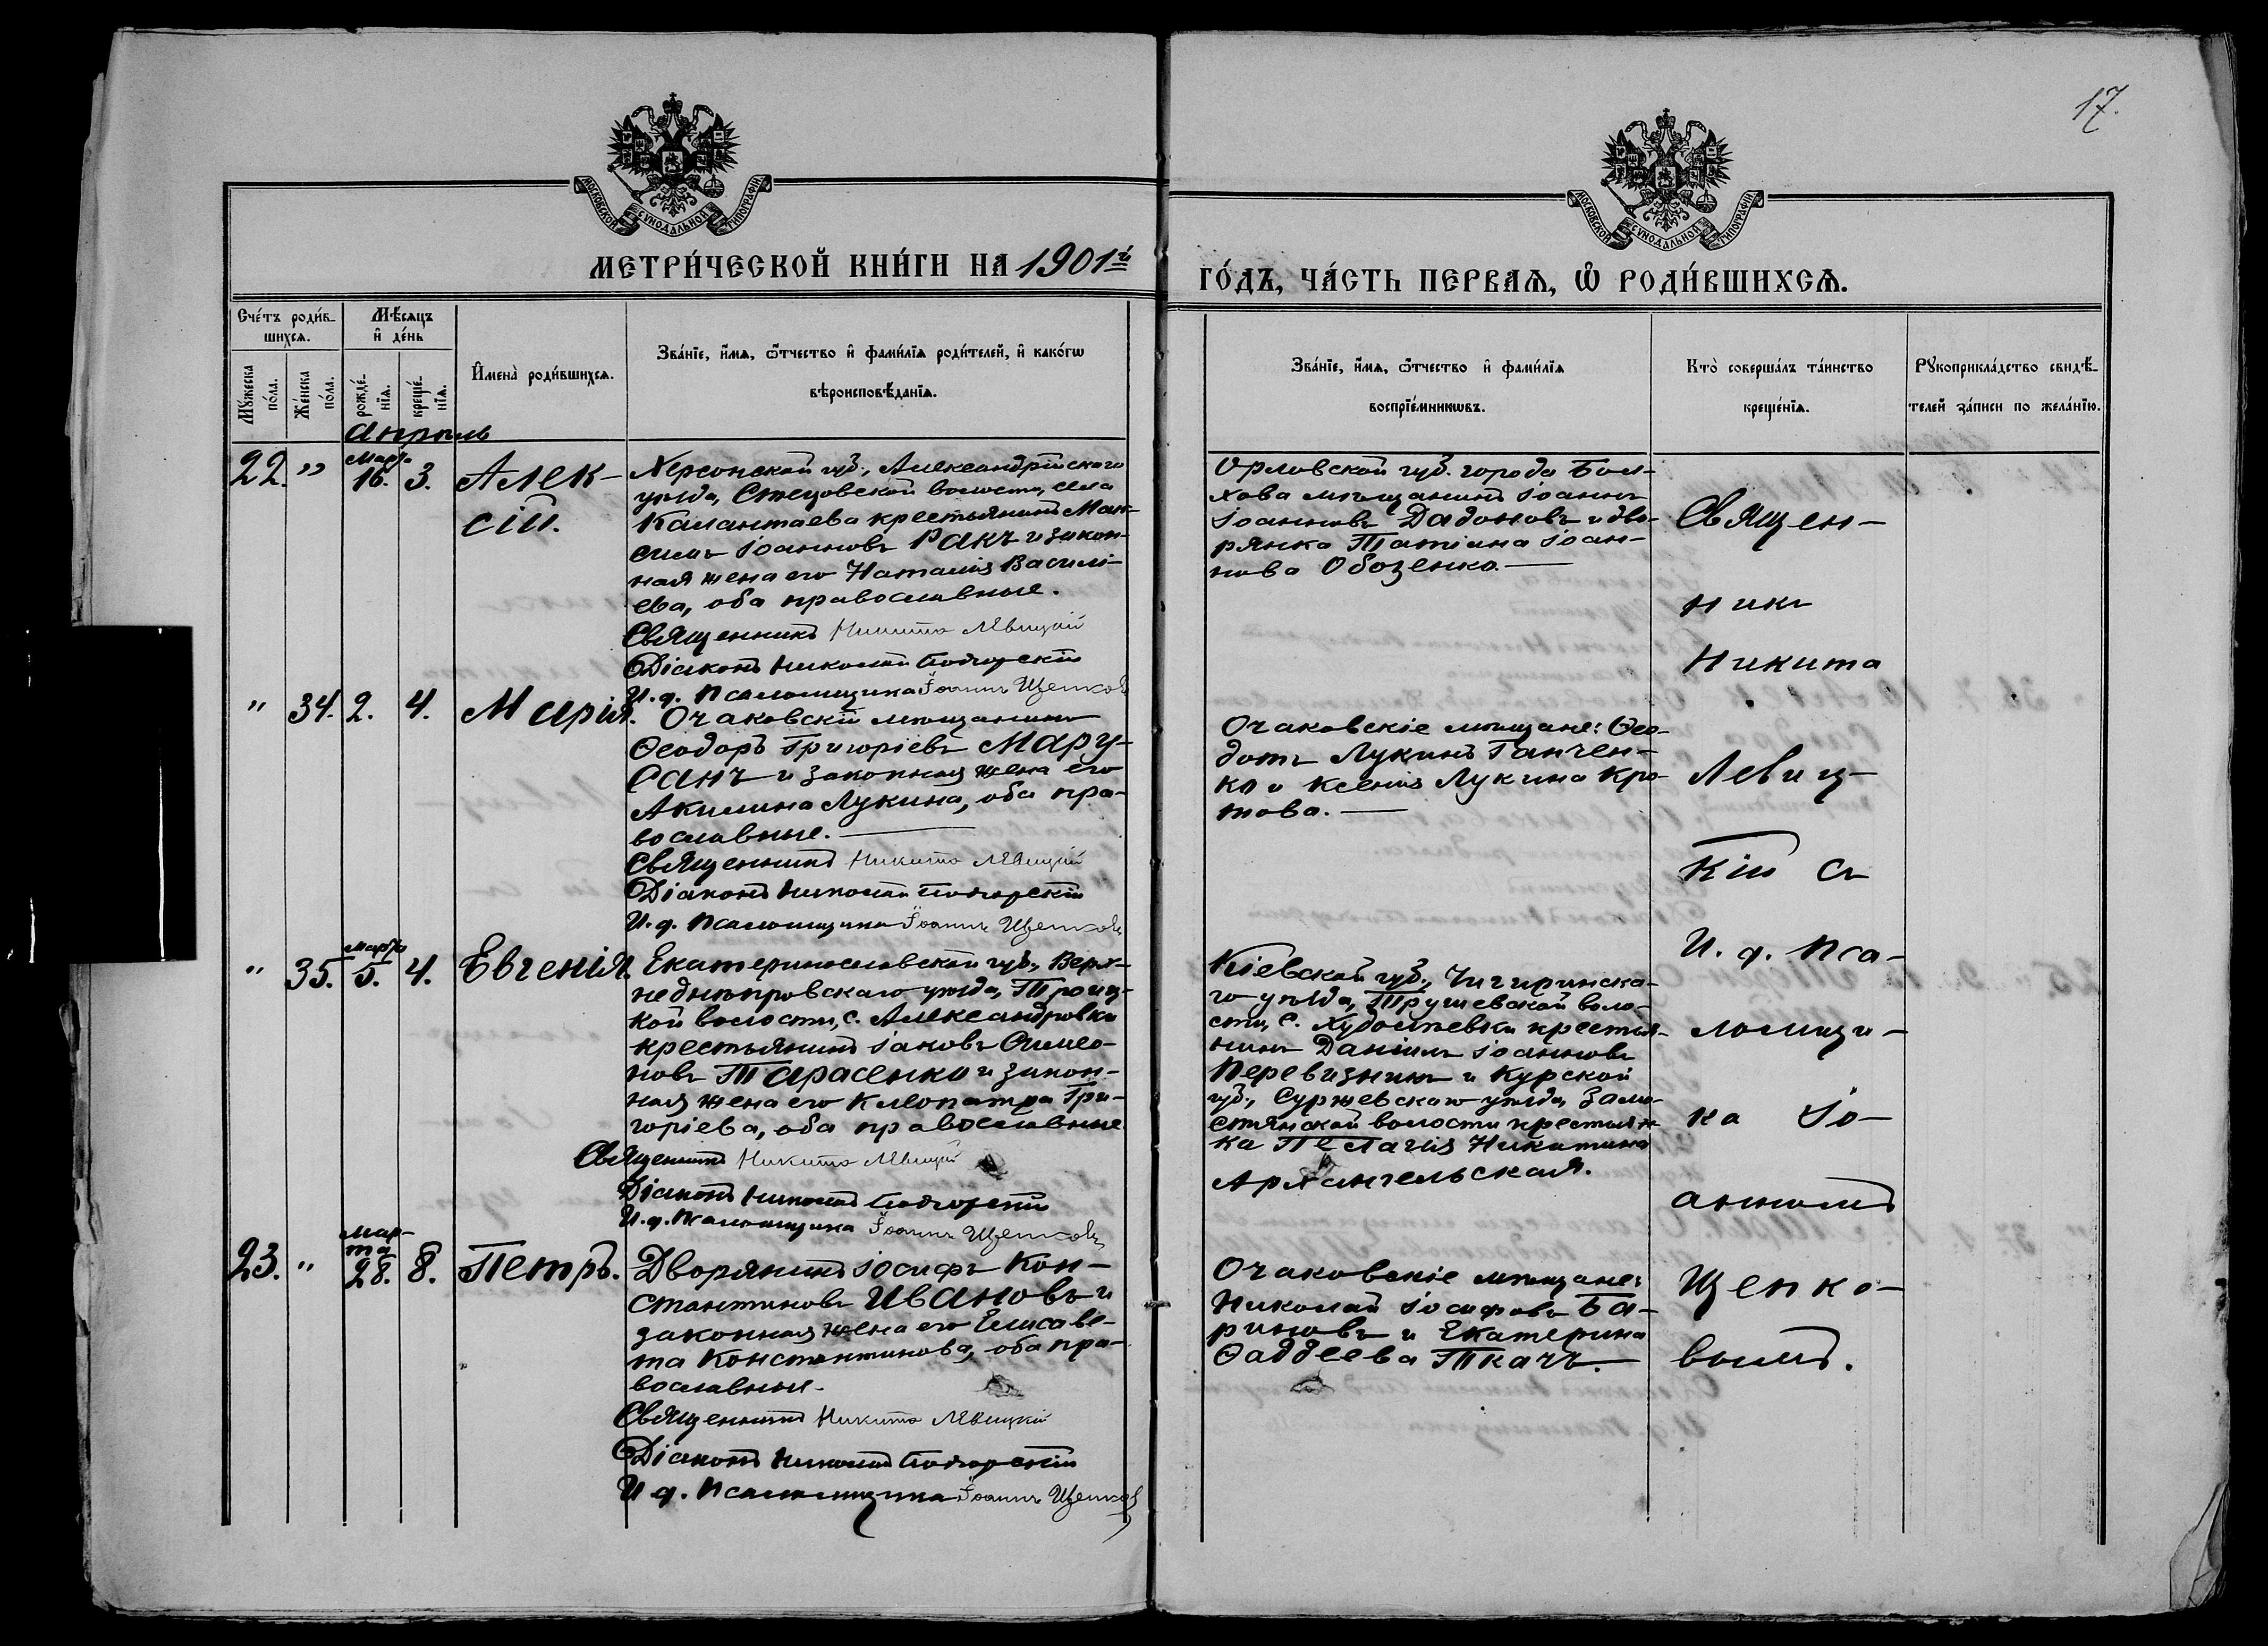 17.
МОСКОВСКОЙ СѴНОДАЛЬНОЙ ТИПОГРАФІИ
МОСКОВСКОЙ СѴНОДАЛЬНОЙ ТИПОГРАФІИ
МЕТРИ́ЧЕСКОЙ КНИ́ГИ НА 1901й
ГО́ДЪ, ЧА́СТЬ ПЕРВАѦ, Ѽ РОДИ́ВШИХСѦ.
Счéтъ роди́в-
шихсѧ.
Мꙋ́жеска
по́ла.
Же́нска
по́ла.
Мѣ́сѧцъ
и҆ де́нь
рожде́-
нїѧ.
креще́-
нїѧ.
И҆мена̀ роди́вшихсѧ.
Зва́нїе, и҆́мѧ, ѻ҆́тчество и҆ фами́лїѧ роди́телей, и҆ како́гѡ
вѣроисповѣ́данїѧ.
Зва́нїе, и҆́мѧ, ѻ҆́тчество и҆ фами́лїѧ
воспрїе́мникѡвъ.
Кто̀ соверша́лъ та́инство
креще́нїѧ.
Рꙋкоприкла́дство свидѣ́-
телей за́писи по жела́нїю.
Апрѣль
22. " Марта 16. 3. Алек-
сій.
Херсонской губ., Александрійскаго
уѣзда, Стецовской волости, села
Калантаева крестьянинъ Мак-
симъ Іоанновъ Ракъ и закон-
ная жена его Наталія Василі-
ева, оба православные.
Священникъ Никита Левицкій
Діаконъ Николай Подгорскій
И. д. Псаломщика Іоаннъ Щепковъ
Орловской губ. города Бол-
хова мѣщанинъ Іоаннъ
Іоанновъ Дадоновъ и дво-
рянка Татіана Іоан-
нова Обозенко.
" 34. 2. 4. Марія.
Очаковскій мѣщанинъ
Ѳеодоръ Григоріевъ Мару-
санъ и законная жена его
Акилина Лукина, оба пра-
вославные.
Священникъ Никита Левицкій
Діаконъ Николай Подгорскій
И. д. Псаломщика Іоаннъ Щепковъ
Очаковскіе мѣщане: Ѳео-
дотъ Лукинъ Ганчен-
ко и Ксенія Лукина Кро-
това.
" 35. Марта 5. 4. Евгенія.
Екатеринославской губ., Верх-
неднѣпровскаго уѣзда, Троиц-
кой волости, с. Александровки
крестьянинъ Іаковъ Симео-
новъ Тарасенко и закон-
ная жена его Клеопатра Гри-
горіева, оба православные
Священникъ Никита Левицкій
Діаконъ Николай Подгорскій
И. д. Псаломщика Іоаннъ Щепковъ
Кіевской губ., Чигиринска-
го уѣзда, Трушевской воло-
сти, с. Худолѣевки крестья-
нинъ Даніилъ Іоанновъ
Перевизникъ и Курской
губ., Суржевскаго уѣзда, Замо-
стянской волости крестьян-
ка Пелагія Никитина
Архангельская.
23. " Мар-
та 28. 8. Петръ.
Дворянинъ Іосифъ Кон-
стантиновъ Ивановъ и
законная жена его Елисаве-
та Константинова, оба пра-
вославные.
Священникъ Никита Левицкій
Діаконъ Николай Подгорскій
И. д. Псаломщика Іоаннъ Щепковъ
Очаковскіе мѣщане:
Николай Іосифовъ Ба-
риновъ и Екатерина
Ѳаддеева Ткачъ.
Священ-
никъ
Никита
Левиц-
кій съ
И. д. Пса-
ломщи-
ка Іо-
анномъ
Щепко-
вымъ.